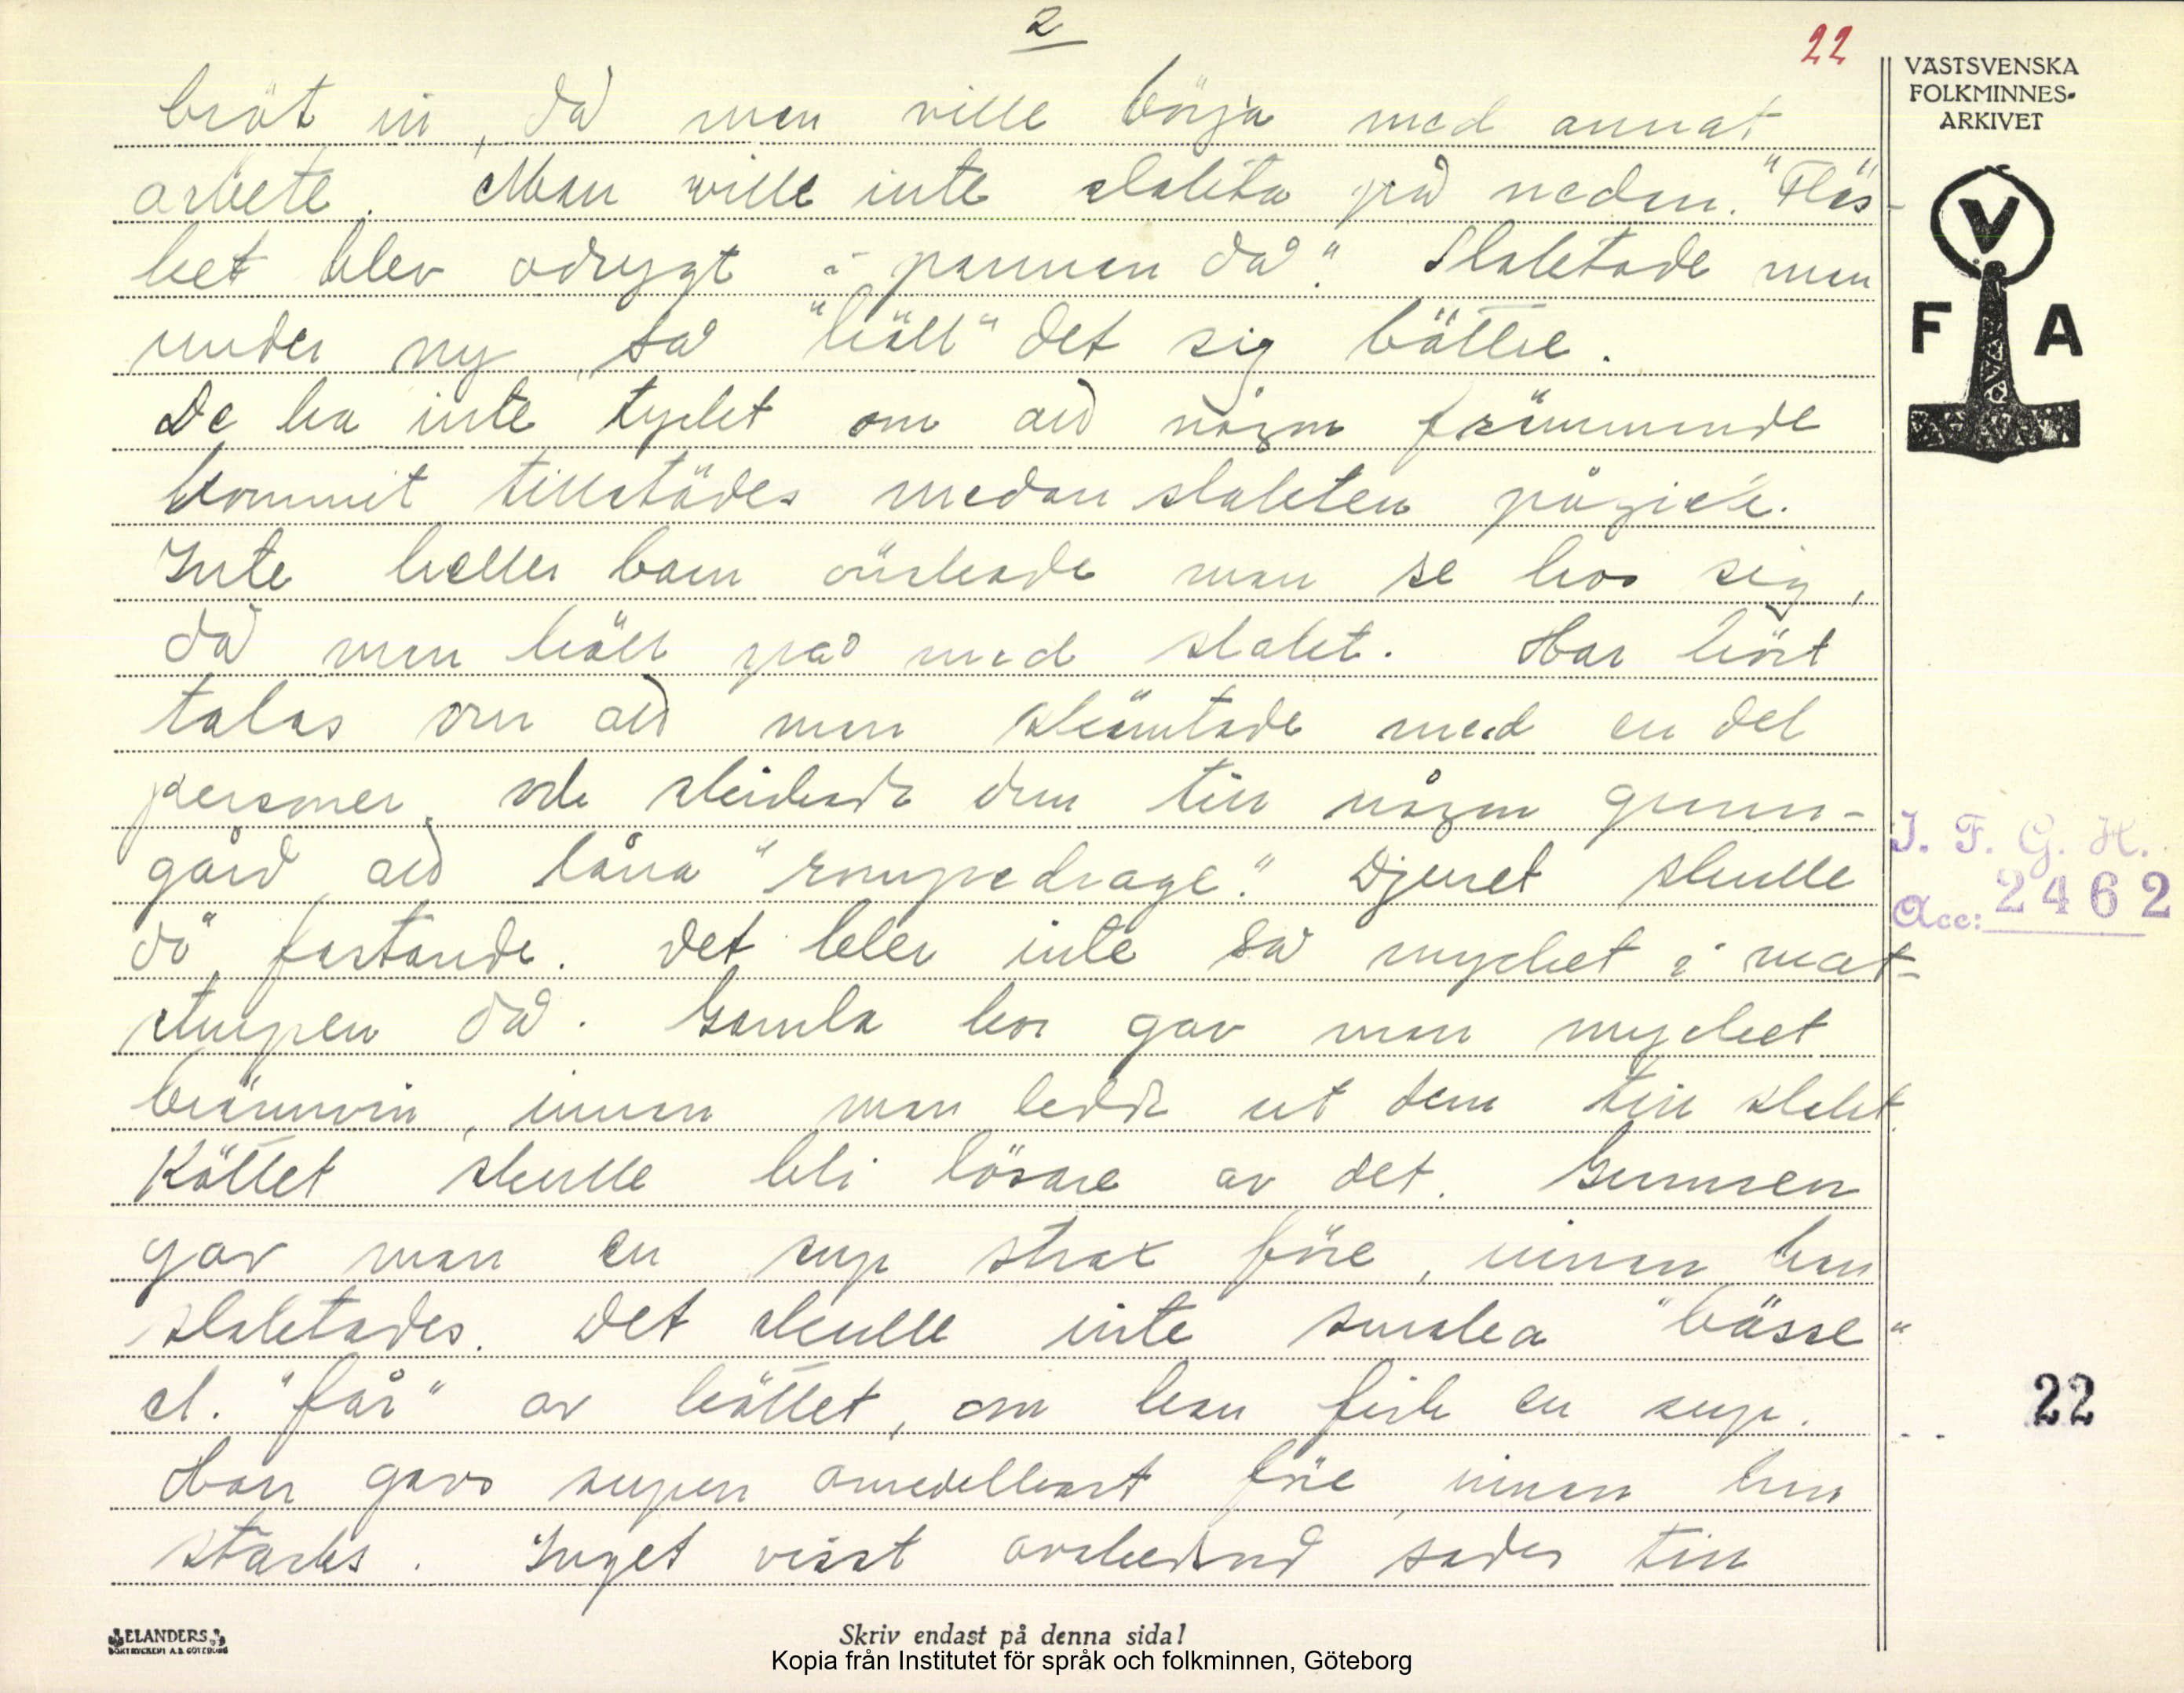 2
22
VÄSTSVENSKA
FOLKMINNES-
ARKIVET
V
F A
bröt in, då man ville börja med annat
arbete. Man ville inte slakta på nedan. "Fläs-
ket blev odrygt i pannan då." Slaktade man
under ny, så "höll" det sig bättre.
De ha inte tyckt om att någon främmande
kommit tillstädes medan slakten pågick.
Inte heller barn önskade man se hos sig,
då man höll på med slakt. Har hört
talas om att man skämtade med en del
personer och skickade dem till någon grann-
gård att låna "rompedrage." Djuret skulle
dö fastande. Det blev inte så mycket i mat-
strupen då. Gamla kor gav man mycket
brännvin, innan man ledde ut dem till slakt.
Köttet skulle bli lösare av det. Gumsen
gav man en sup strax före, innan han
slaktades. Det skulle inte smaka "bässe"
el. "får" av köttet, om han fick en sup.
Han gavs supen omedelbart före innan han
stacks. Inget visst avskedsord sades till
I. F. G. H.
Acc: 2462
22
ELANDERS
BOKTRYCKERI A.B. GÖTEBORG
Skriv endast på denna sida!
Kopia från Institutet för språk och folkminnen, Göteborg